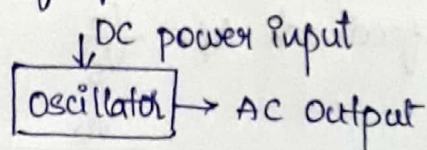 DC power input
Oscillator
AC Output